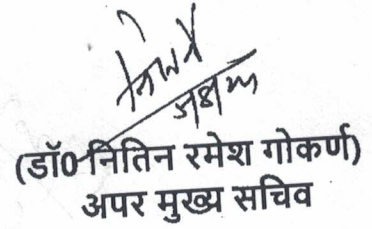 (डॉ0 नितिन रमेश गोकर्ण)
अपर मुख्य सचिव